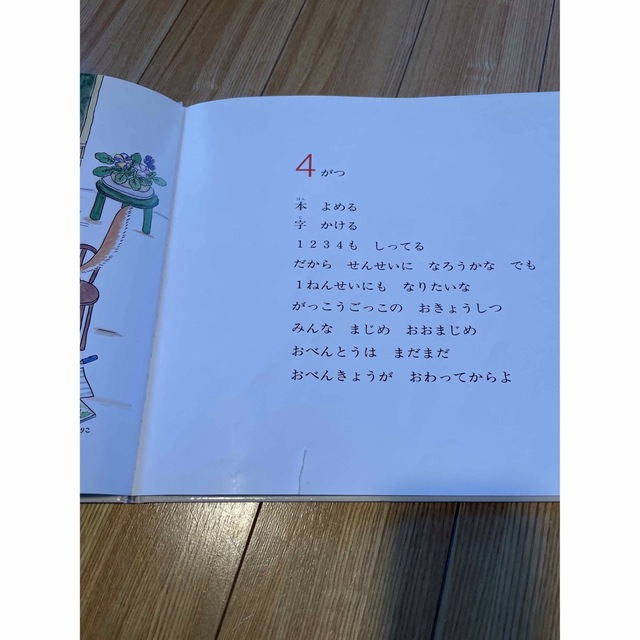 4がつ
本 よめる
字 かける
1234も しってる
だから せんせいに なろうかな でも
1ねんせいにも なりたいな
がっこうごっこの おきょうしつ
みんな まじめ おおまじめ
おべんとうは まだまだ
おべんきょうが おわってからよ